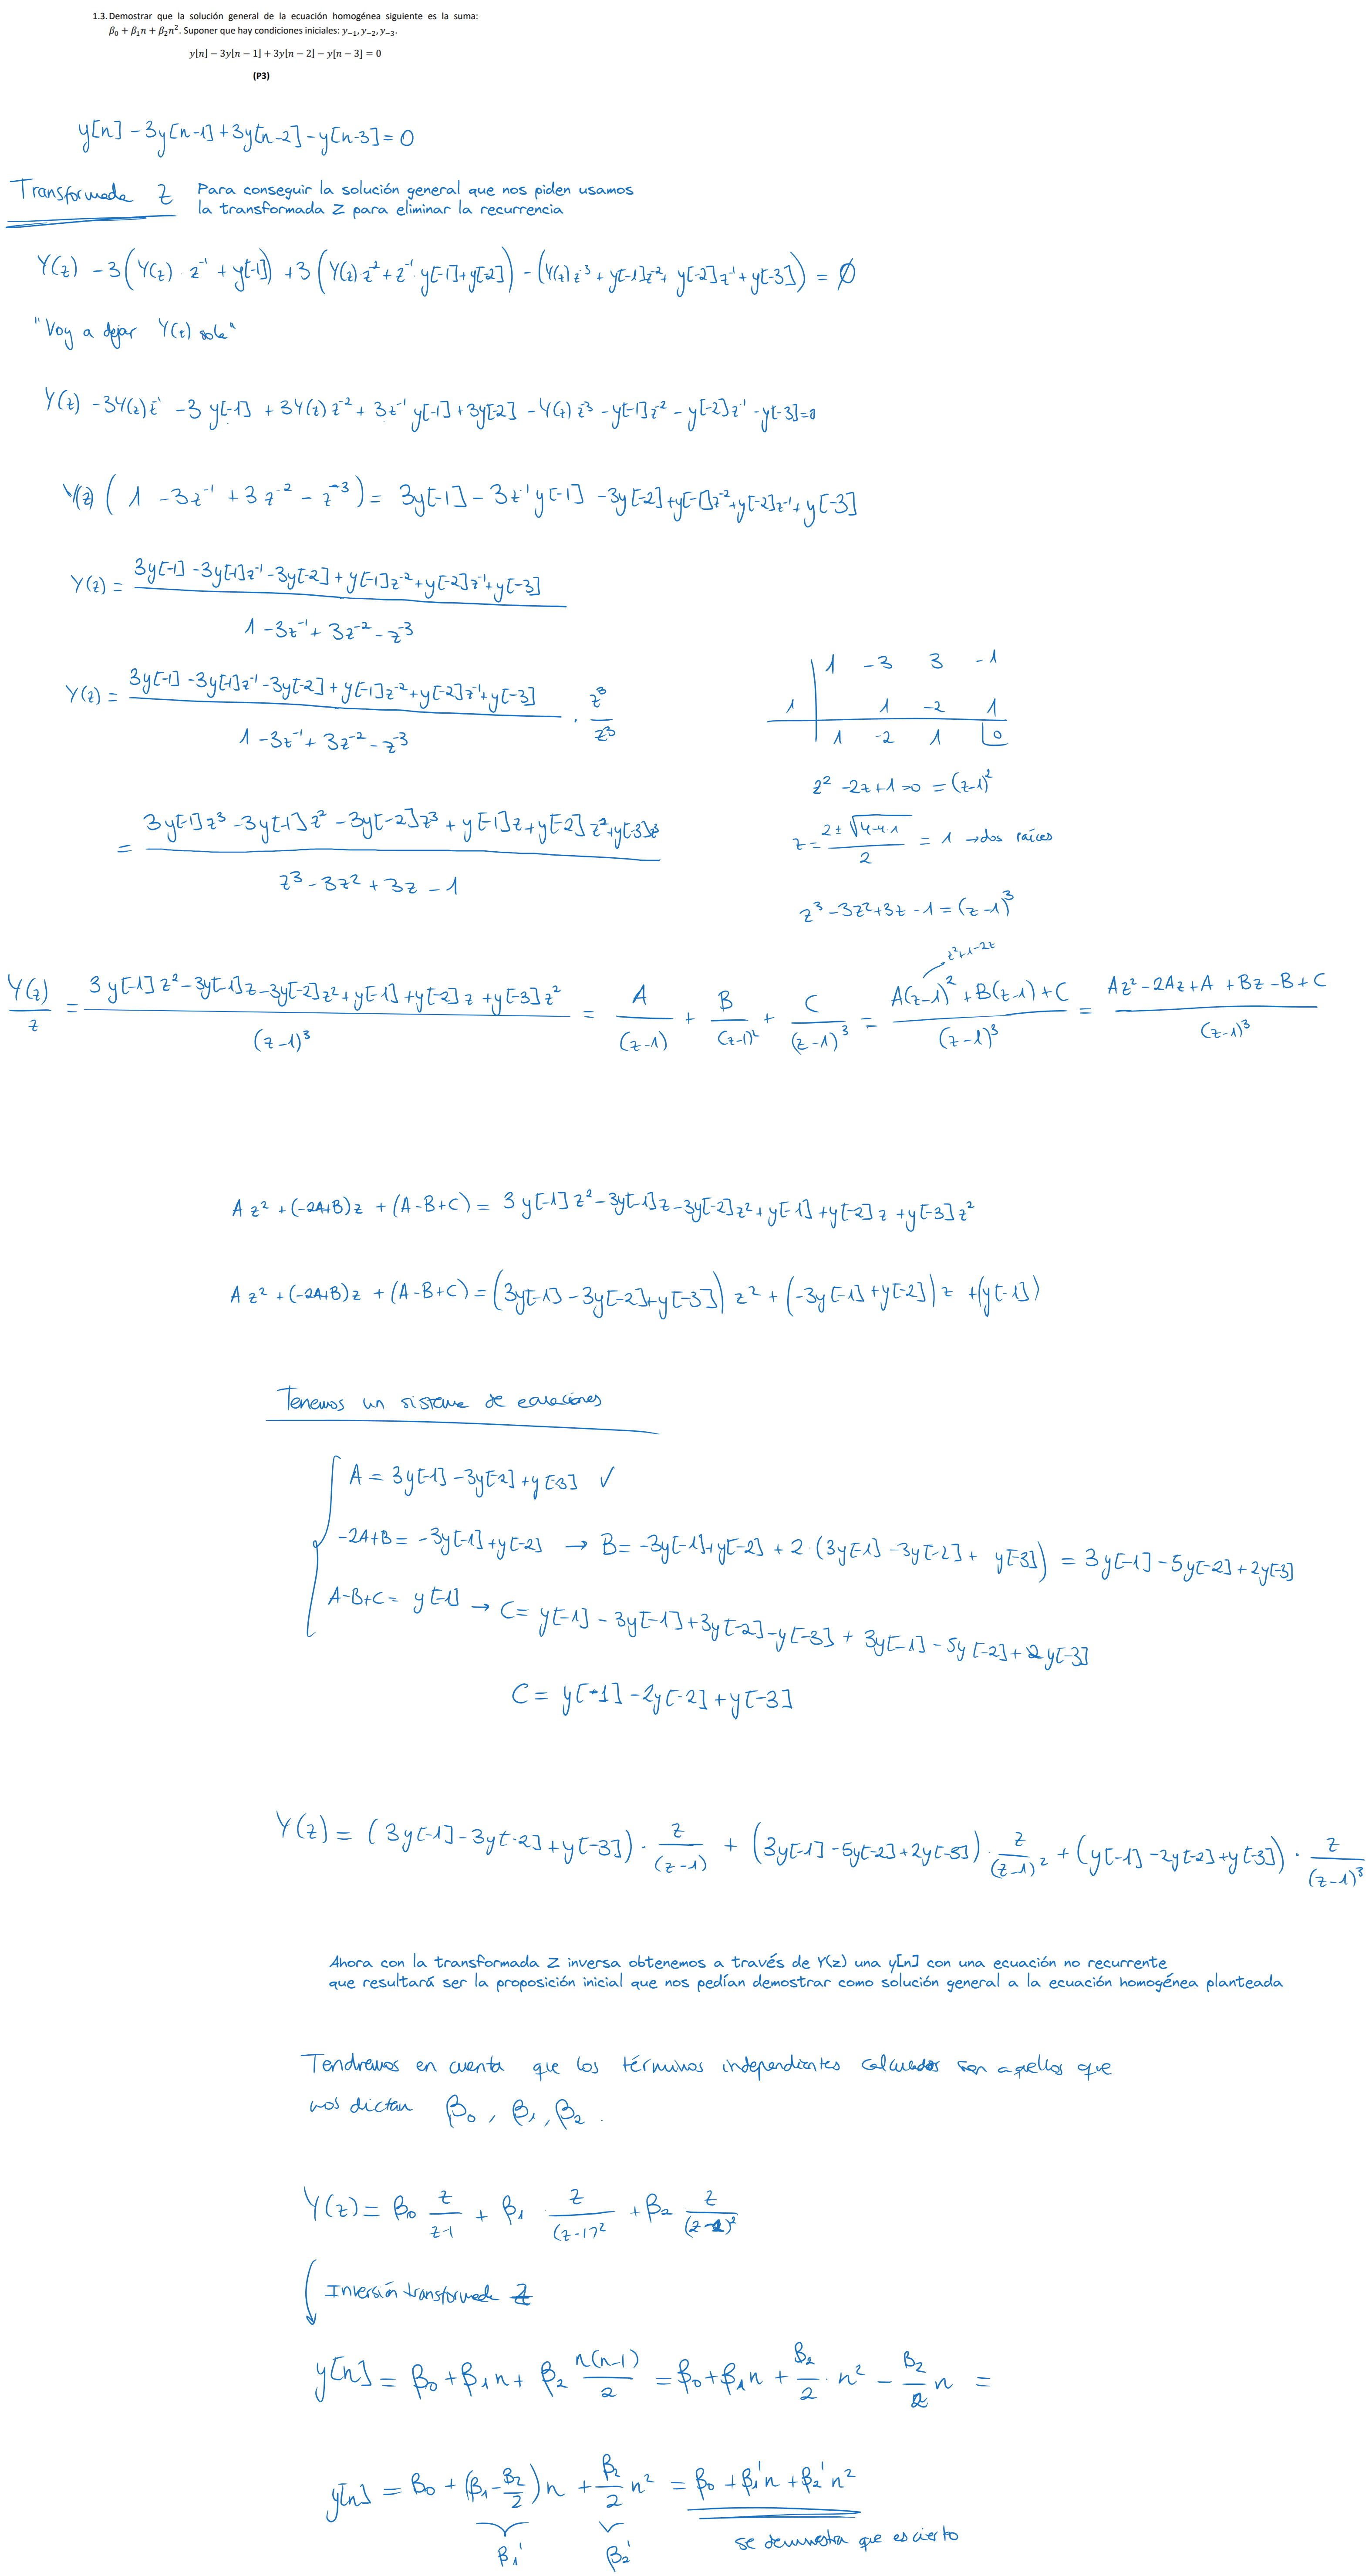 1.3. Demostrar que la solución general de la ecuación homogénea siguiente es la suma:
β₀ + β₁n + β₂n². Suponer que hay condiciones iniciales: y₋₁, y₋₂, y₋₃.
y[n] − 3y[n − 1] + 3y[n − 2] − y[n − 3] = 0
(P3)
y[n] - 3y[n-1] + 3y[n-2] - y[n-3] = 0
Transformada Z Para conseguir la solución general que nos piden usamos
la transformada Z para eliminar la recurrencia
Y(z) - 3(Y(z) · z⁻¹ + y[-1]) + 3(Y(z)·z⁻² + z⁻¹·y[-1] + y[-2]) - (Y(z)z⁻³ + y[-1]z⁻² + y[-2]z⁻¹ + y[-3]) = ∅
"Voy a dejar Y(z) sola"
Y(z) - 3Y(z)z⁻¹ - 3y[-1] + 3Y(z)z⁻² + 3z⁻¹y[-1] + 3y[-2] - Y(z)z⁻³ - y[-1]z⁻² - y[-2]z⁻¹ - y[-3] = 0
Y(z) (1 - 3z⁻¹ + 3z⁻² - z⁻³) = 3y[-1] - 3z⁻¹y[-1] - 3y[-2] + y[-1]z⁻² + y[-2]z⁻¹ + y[-3]
Y(z) = 3y[-1] - 3y[-1]z⁻¹ - 3y[-2] + y[-1]z⁻² + y[-2]z⁻¹ + y[-3]
1 - 3z⁻¹ + 3z⁻² - z⁻³
Y(z) = 3y[-1] - 3y[-1]z⁻¹ - 3y[-2] + y[-1]z⁻² + y[-2]z⁻¹ + y[-3] · z³
1 - 3z⁻¹ + 3z⁻² - z⁻³ z³
1 -3 3 -1
1 1 -2 1
1 -2 1 0
z² - 2z + 1 = 0 = (z-1)²
z = 2 ± √4-4·1 = 1 → dos raíces
2
z³ - 3z² + 3z - 1 = (z-1)³
= 3y[-1]z³ - 3y[-1]z² - 3y[-2]z³ + y[-1]z + y[-2]z² + y[-3]z³
z³ - 3z² + 3z - 1
z²+1-2z
Y(z) = 3y[-1]z² - 3y[-1]z - 3y[-2]z² + y[-1] + y[-2]z + y[-3]z² = A + B + C = A(z-1)² + B(z-1) + C = Az² - 2Az + A + Bz - B + C
z (z-1)³ (z-1) (z-1)² (z-1)³ (z-1)³ (z-1)³
Az² + (-2A+B)z + (A-B+C) = 3y[-1]z² - 3y[-1]z - 3y[-2]z² + y[-1] + y[-2]z + y[-3]z²
Az² + (-2A+B)z + (A-B+C) = (3y[-1] - 3y[-2] + y[-3]) z² + (-3y[-1] + y[-2]) z + (y[-1])
Tenemos un sistema de ecuaciones
A = 3y[-1] - 3y[-2] + y[-3] ✓
-2A+B = -3y[-1] + y[-2] → B = -3y[-1] + y[-2] + 2·(3y[-1] - 3y[-2] + y[-3]) = 3y[-1] - 5y[-2] + 2y[-3]
A-B+C = y[-1] → C = y[-1] - 3y[-1] + 3y[-2] - y[-3] + 3y[-1] - 5y[-2] + 2y[-3]
C = y[-1] - 2y[-2] + y[-3]
Y(z) = (3y[-1] - 3y[-2] + y[-3]) · z + (3y[-1] - 5y[-2] + 2y[-3]) · z + (y[-1] - 2y[-2] + y[-3]) · z
(z-1) (z-1)² (z-1)³
Ahora con la transformada Z inversa obtenemos a través de Y(z) una y[n] con una ecuación no recurrente
que resultará ser la proposición inicial que nos pedían demostrar como solución general a la ecuación homogénea planteada
Tendremos en cuenta que los términos independientes calculados son aquellos que
nos dictan β₀, β₁, β₂.
Y(z) = β₀ z + β₁ · z + β₂ z
z-1 (z-1)² (z-1)²
Inversión transformada Z
y[n] = β₀ + β₁n + β₂ n(n-1) = β₀ + β₁n + β₂ · n² - β₂ n =
2 2 2
y[n] = β₀ + (β₁ - β₂/2) n + β₂/2 n² = β₀ + β₁'n + β₂'n²
β₁' β₂' se demuestra que es cierto